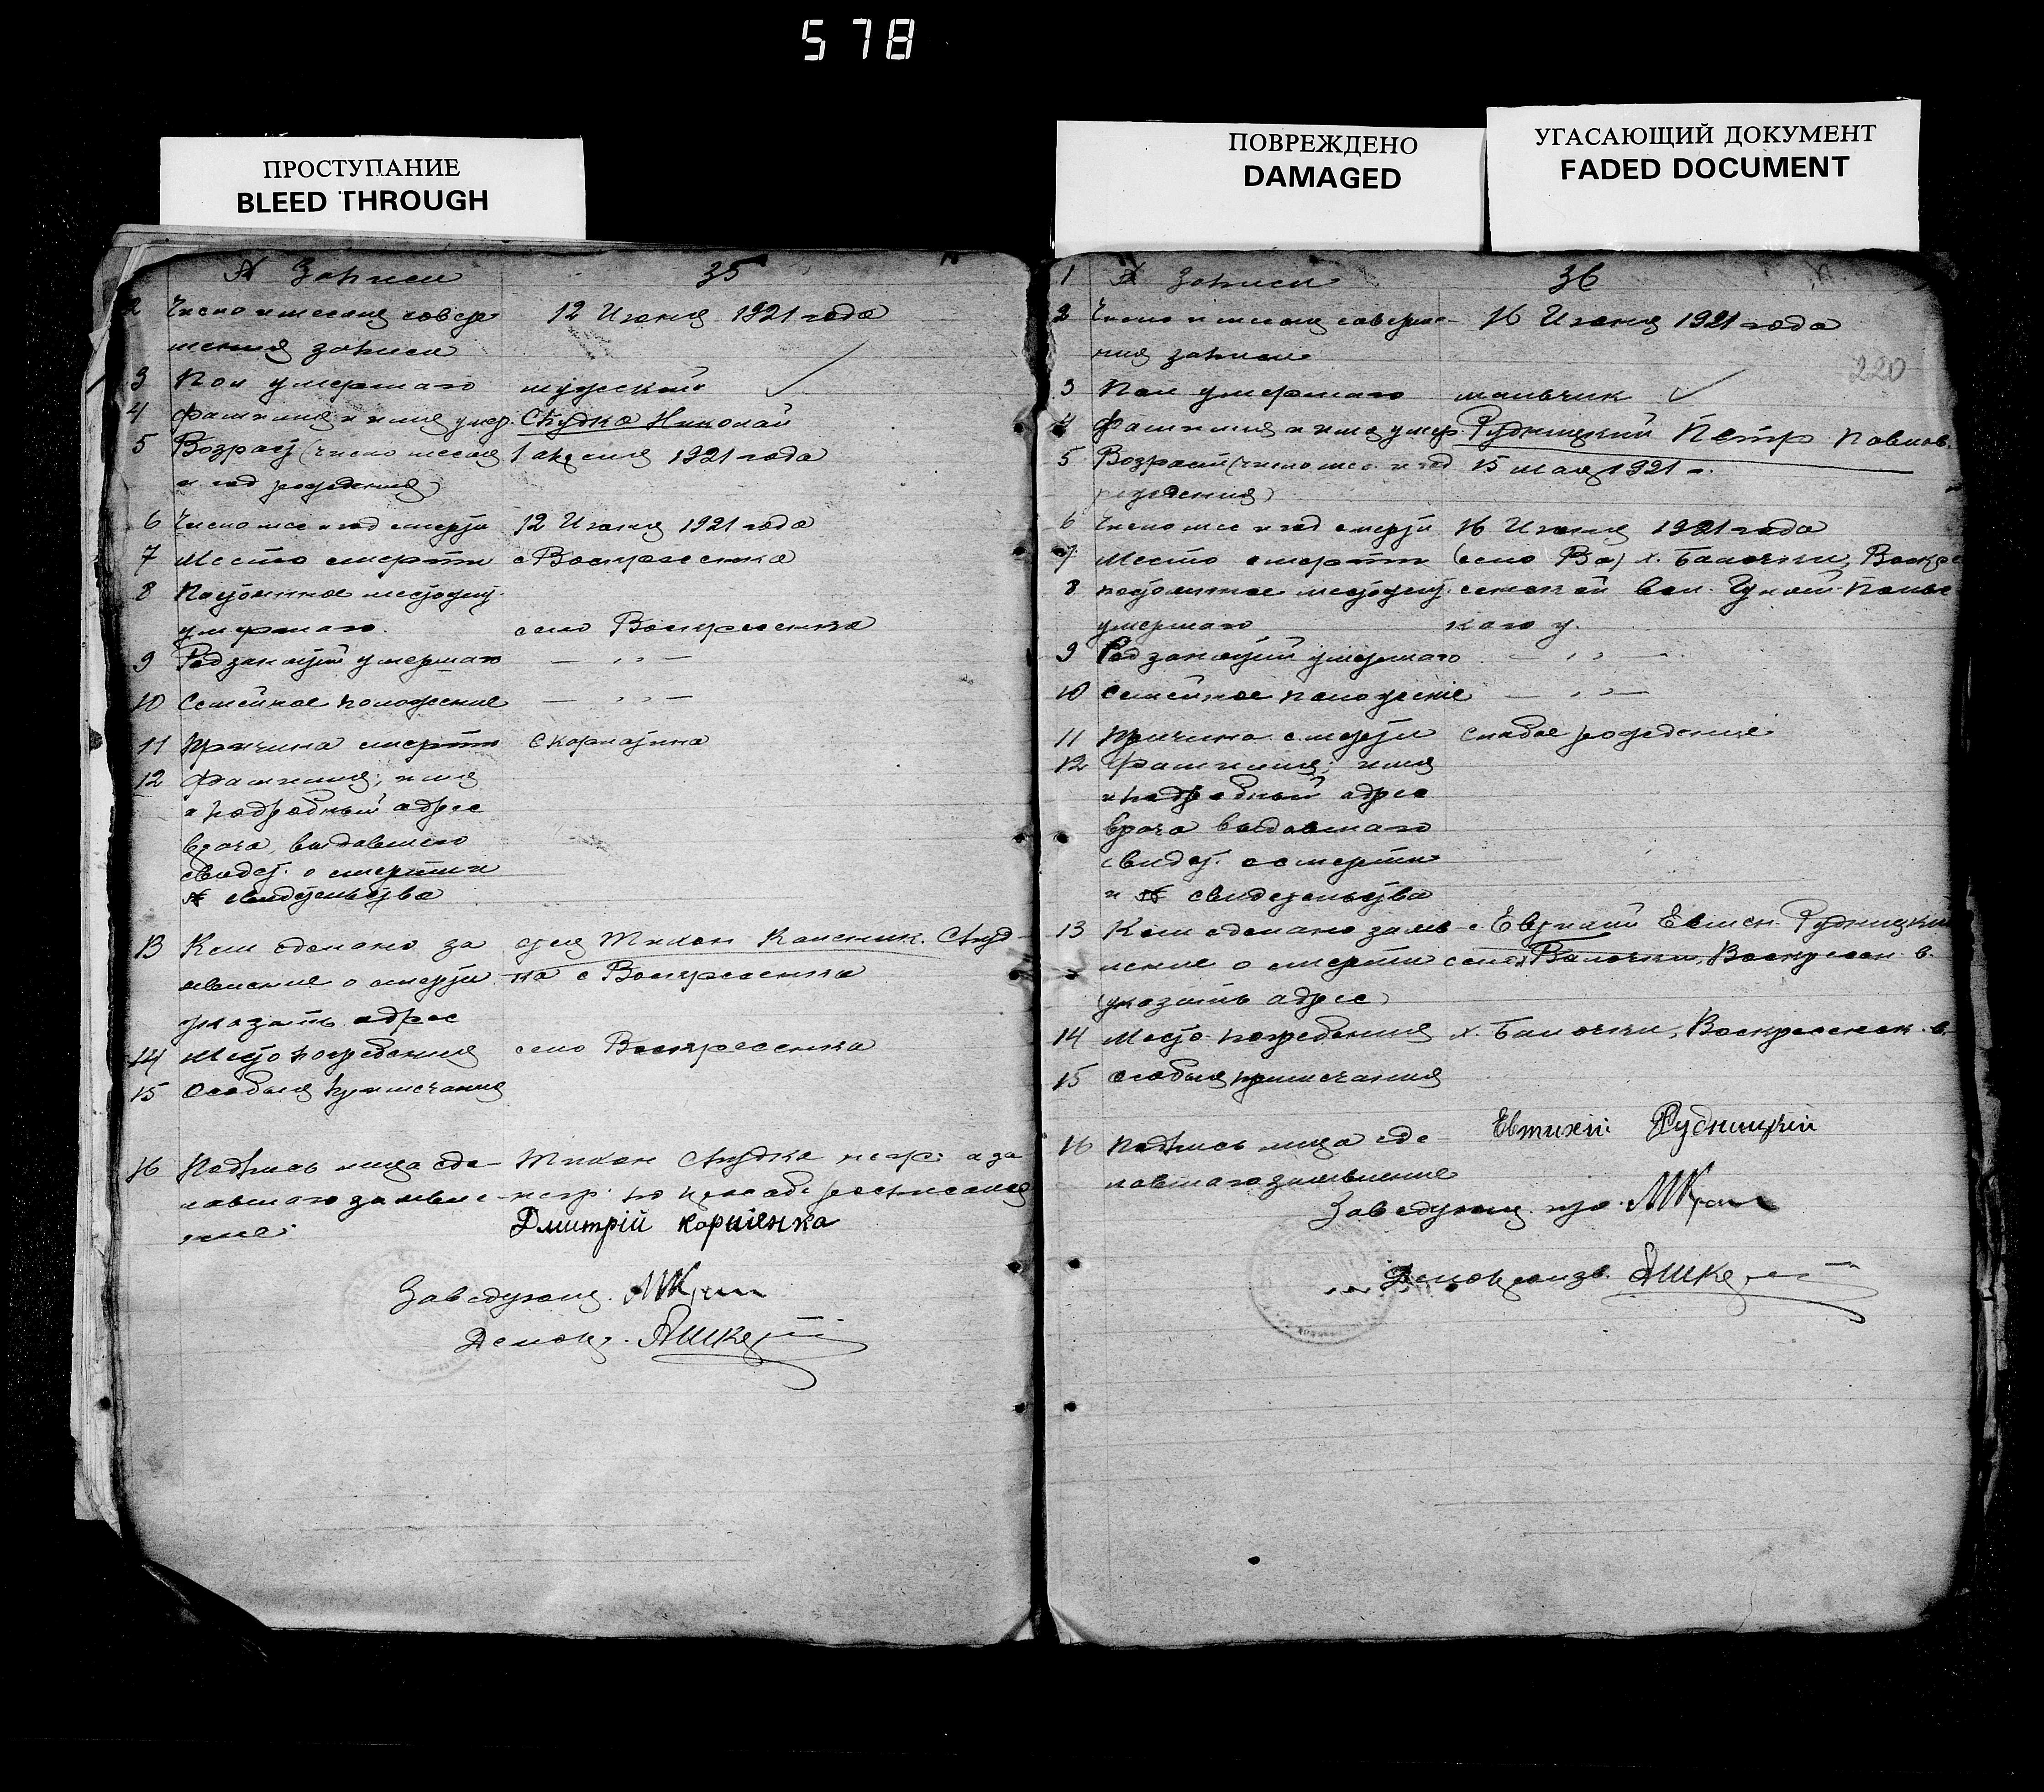 578
ПРОСТУПАНИЕ
BLEED THROUGH
ПОВРЕЖДЕНО
DAMAGED
УГАСАЮЩИЙ ДОКУМЕНТ
FADED DOCUMENT
№ Записи 35
2 Число и месяц совер- 12 Июня 1921 года
шения записи
3 Пол умершаго мужской
4 Фамилия и имя умер. Николай
5 Возраст (число месяц 1 апреля 1921 года
и год рождения)
6 Число мес и год смерти 12 Июня 1921 года
7 Место смерти с Воскресенка
8 Постоянное местожит.
умершаго. село Воскресенка
9 Род занятий умершаго — „ —
10 Семейное положение — „ —
11 Причина смерти Скарлатина
12 Фамилия, имя
и подробный адрес
врача, выдавшего
свидет. о смерти и
№ свидетельства
13 Кем сделано за- отец Тихон
явление о смерти -ка с Воскресенка
указать адрес
14 Место погребения село Воскресенка
15 Особыя примечания
16 Подпись лица сде- Тихон негр. а за
лавшаго заявле- негр. по просьбе росписался
ние. Дмитрій Корніенко
Заведующ.
Делопр.
1 № Записи 36
220
2 Число и месяц соверше- 16 Июня 1921 года
ния записи
3 Пол умершаго мальчик
4 Фамилия и имя умер. Рудницкий Петр Павлов.
5 Возраст (число мес. и год 15 мая 1921 г.
рождения)
6 Число мес и год смерти 16 Июня 1921 года
7 Место смерти (село Во) х. Балочки, Воскре
8 постоянное местожит. сенской вол. Гуляй-Польс
умершаго каго у.
9 Род занятий умершаго — „ —
10 Семейное положение — „ —
11 Причина смерти слабое рождение
12 Фамилия, имя
и подробный адрес
врача выдавшаго
свидет. о смерти
и № свидетельства
13 Кем сделано заяв- Евтихий Рудницкий
ление о смерти Балочки, Воскресен. в.
(указать адрес)
14 Место погребения х. Балочки, Воскресенск. в.
15 Особыя примечания
16 Подпись лица сде- Евтихій Рудницкій
лавшаго заявление
Заведующ.
Делопроизв.